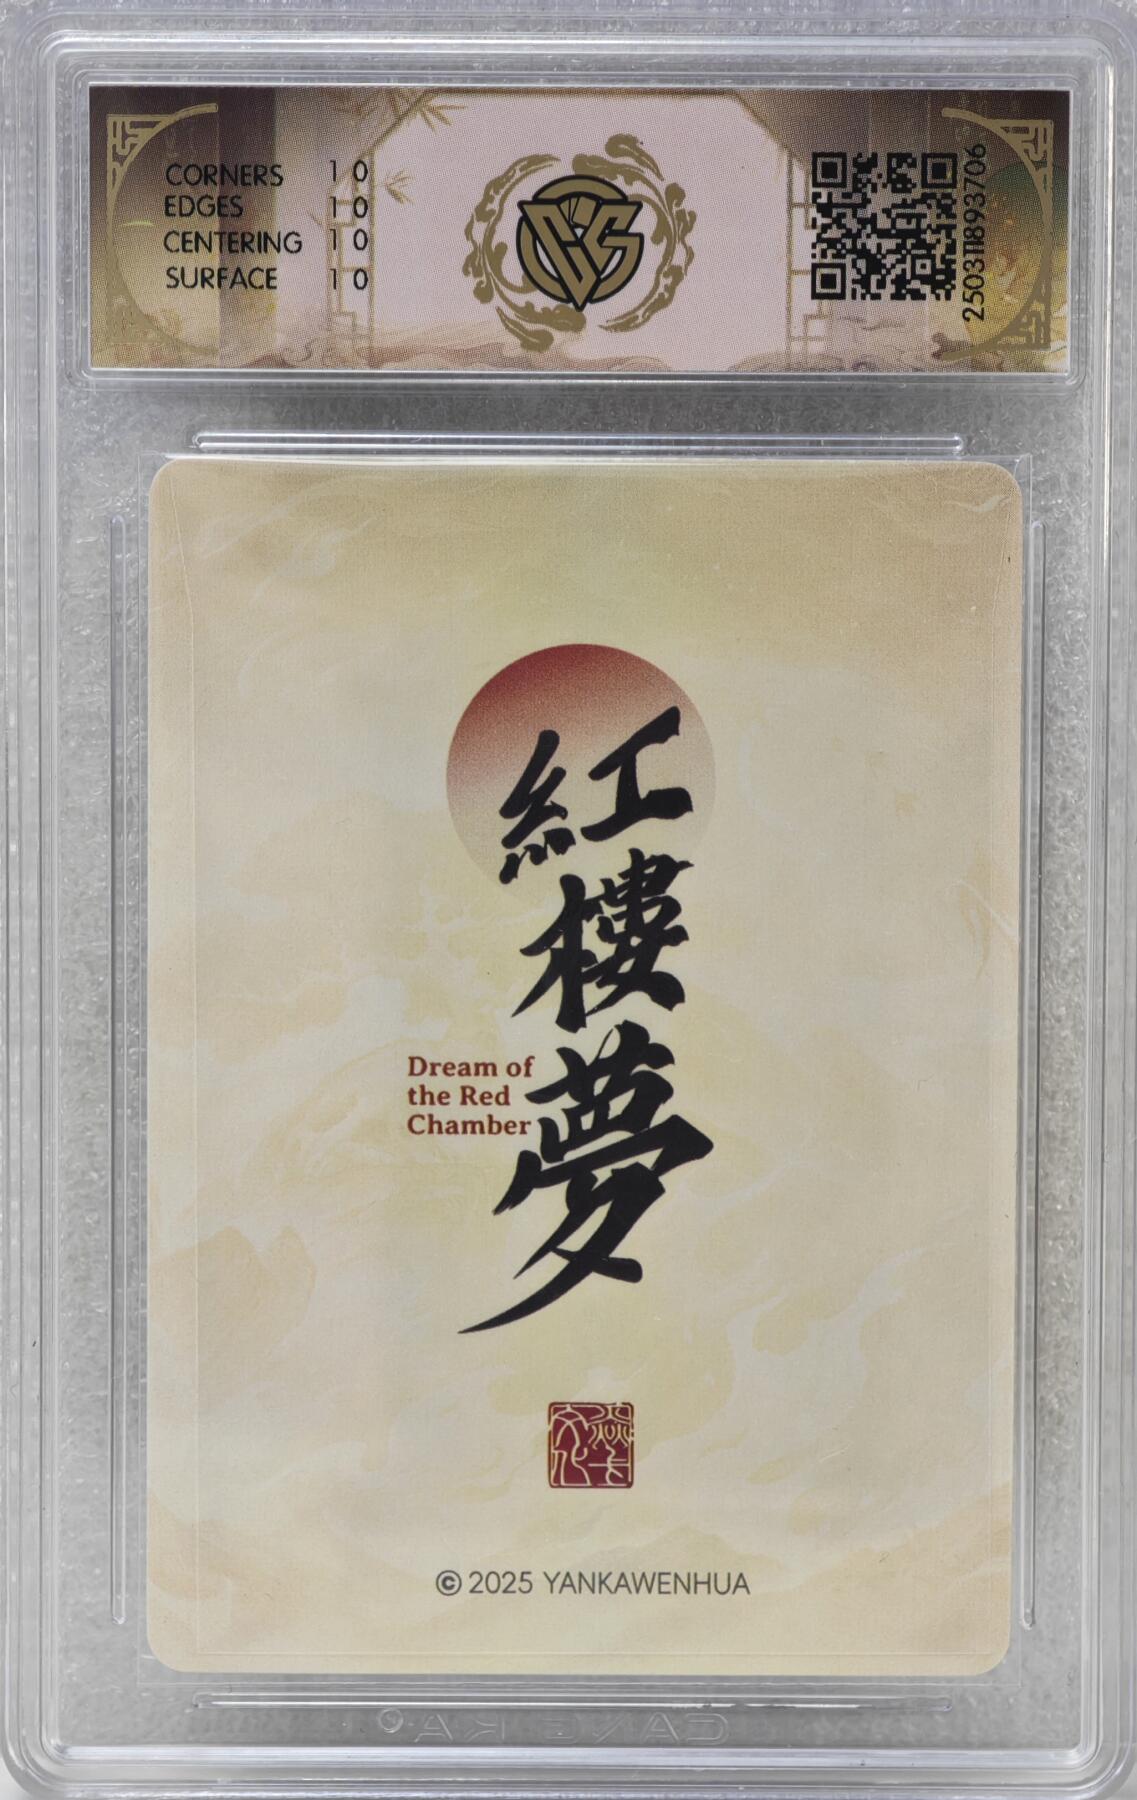 CORNERS 10
EDGES 10
CENTERING 10
SURFACE 10
250311893706
紅樓夢
Dream of
the Red
Chamber
© 2025 YANKAWENHUA